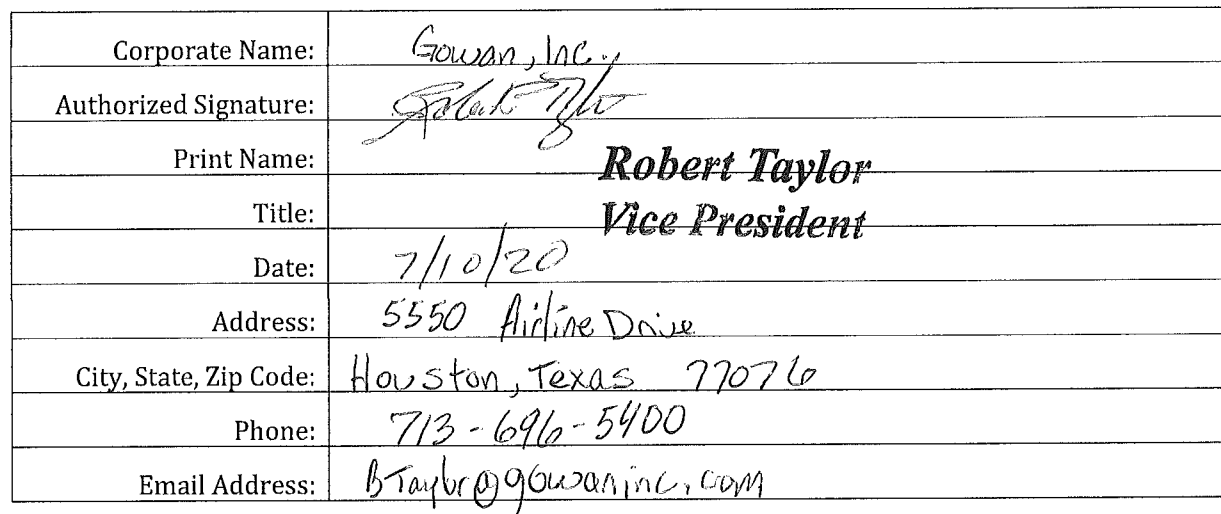 Corporate Name: Gowan, Inc.
Authorized Signature:
Print Name: Robert Taylor
Title: Vice President
Date: 7/10/20
Address: 5550 Airline Drive
City, State, Zip Code: Houston, Texas 77076
Phone: 713-696-5400
Email Address: BTaylor@gowaninc.com